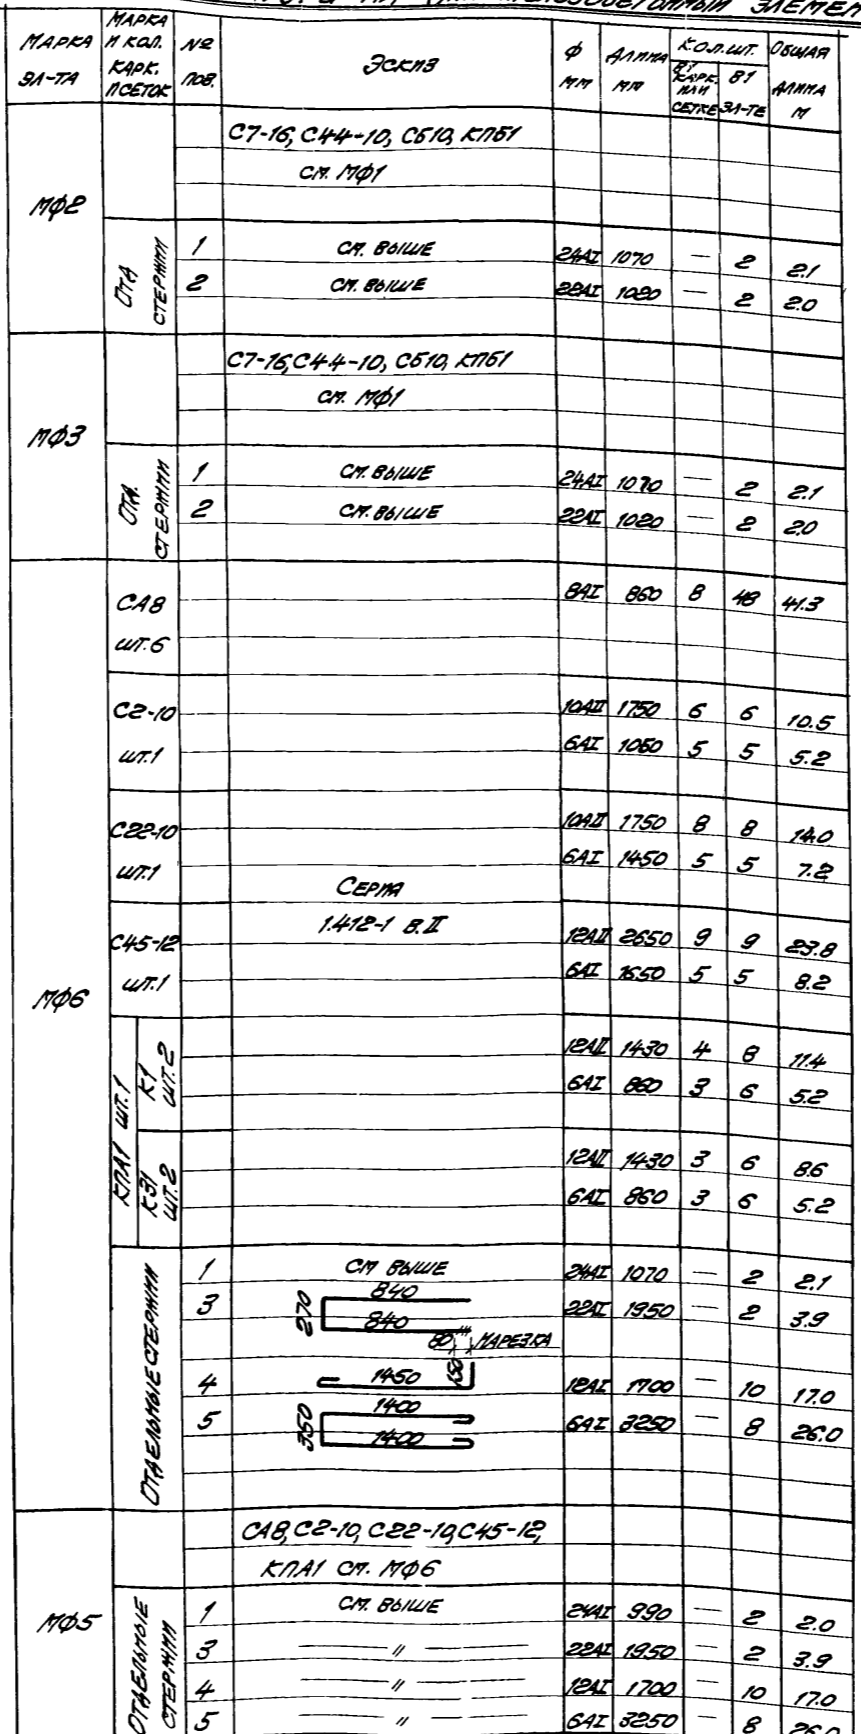 МАРКА ЭЛ-ТА МАРКА И КОЛ. КАРК. И СЕТОК №№ ПОЗ. ЭСКИЗ Ф ММ ДЛИНА ММ КОЛ. ШТ. В 1 КАРК. ИЛИ СЕТКЕ В 1 ЭЛ-ТЕ ОБЩАЯ ДЛИНА М
МФ2
С7-16, С44-10, СБ10, КПБ1
СМ. МФ1
ОТД СТЕРЖНИ
1 СМ. ВЫШЕ 24АI 1070 — 2 2.1
2 СМ. ВЫШЕ 22АI 1020 — 2 2.0
МФ3
С7-16, С44-10, СБ10, КПБ1
СМ. МФ1
ОТД. СТЕРЖНИ
1 СМ. ВЫШЕ 24АI 1070 — 2 2.1
2 СМ. ВЫШЕ 22АI 1020 — 2 2.0
МФ6
СА8 8АI 860 8 48 41.3
ШТ.6
С2-10 10АII 1750 6 6 10.5
ШТ.1 6АI 1050 5 5 5.2
С22-10 10АII 1750 8 8 14.0
ШТ.1 6АI 1450 5 5 7.2
СЕРИЯ
1.412-1 В.II
С45-12 12АII 2650 9 9 23.8
ШТ.1 6АI 1650 5 5 8.2
КПА1 ШТ.1
К1 ШТ.2 12АII 1430 4 8 11.4
6АI 860 3 6 5.2
К31 ШТ.2 12АII 1430 3 6 8.6
6АI 860 3 6 5.2
ОТДЕЛЬНЫЕ СТЕРЖНИ
1 СМ ВЫШЕ 24АI 1070 — 2 2.1
3 270 840 840 22АI 1950 — 2 3.9
80 НАРЕЗКА
4 1450 150 12АI 1700 — 10 17.0
5 350 1400 1400 6АI 3250 — 8 26.0
МФ5
СА8, С2-10, С22-10, С45-12,
КПА1 СМ. МФ6
ОТДЕЛЬНЫЕ СТЕРЖНИ
1 СМ. ВЫШЕ 24АI 990 — 2 2.0
3 — // — 22АI 1950 — 2 3.9
4 — // — 12АI 1700 — 10 17.0
5 — // — 6АI 3250 — 8 26.0